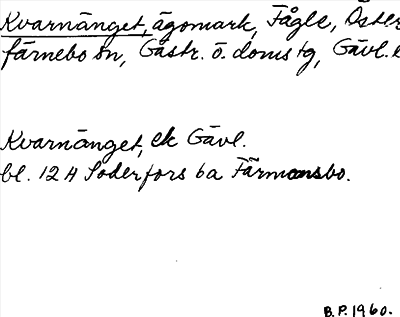 Kvarnänget, ägomark, Fågle, Öster
färnebo sn, Gästr. ö. domstg, Gävl. l
Kvarnänget, ek Gävl.
bl. 12 H Söderfors ba Färmansbo.
B.P. 1960.